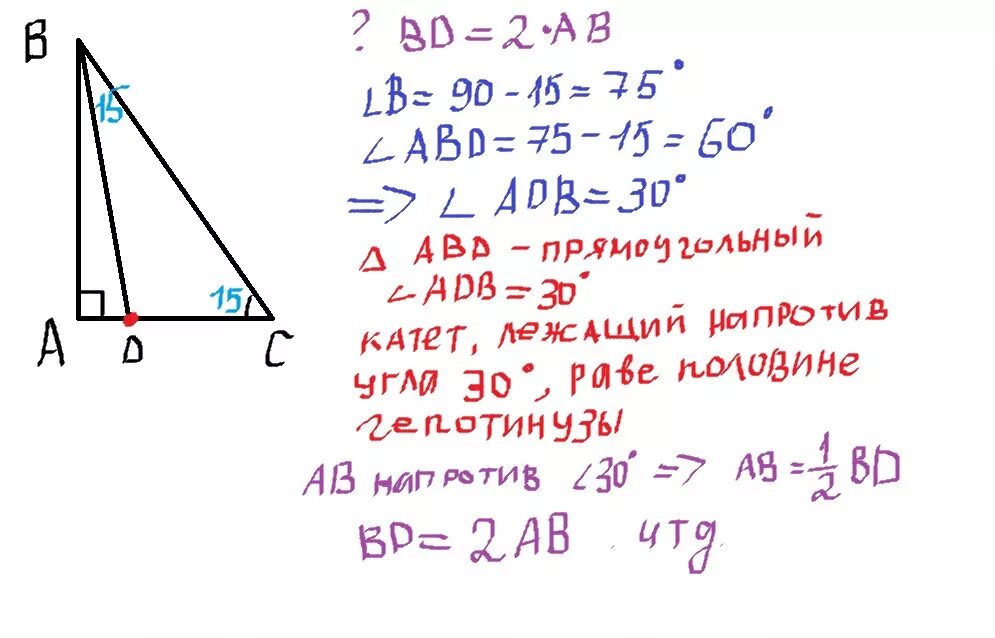 B
15
15
A
D
C
? BD = 2·AB
∠B = 90 - 15 = 75°
∠ABD = 75 - 15 = 60°
=> ∠ ADB = 30°
Δ ABD - прямоугольный
∠ADB = 30°
катет, лежащий напротив
угла 30°, раве половине
гепотинузы
AB напротив ∠30° => AB = 1/2 BD
BD = 2AB . чтд.